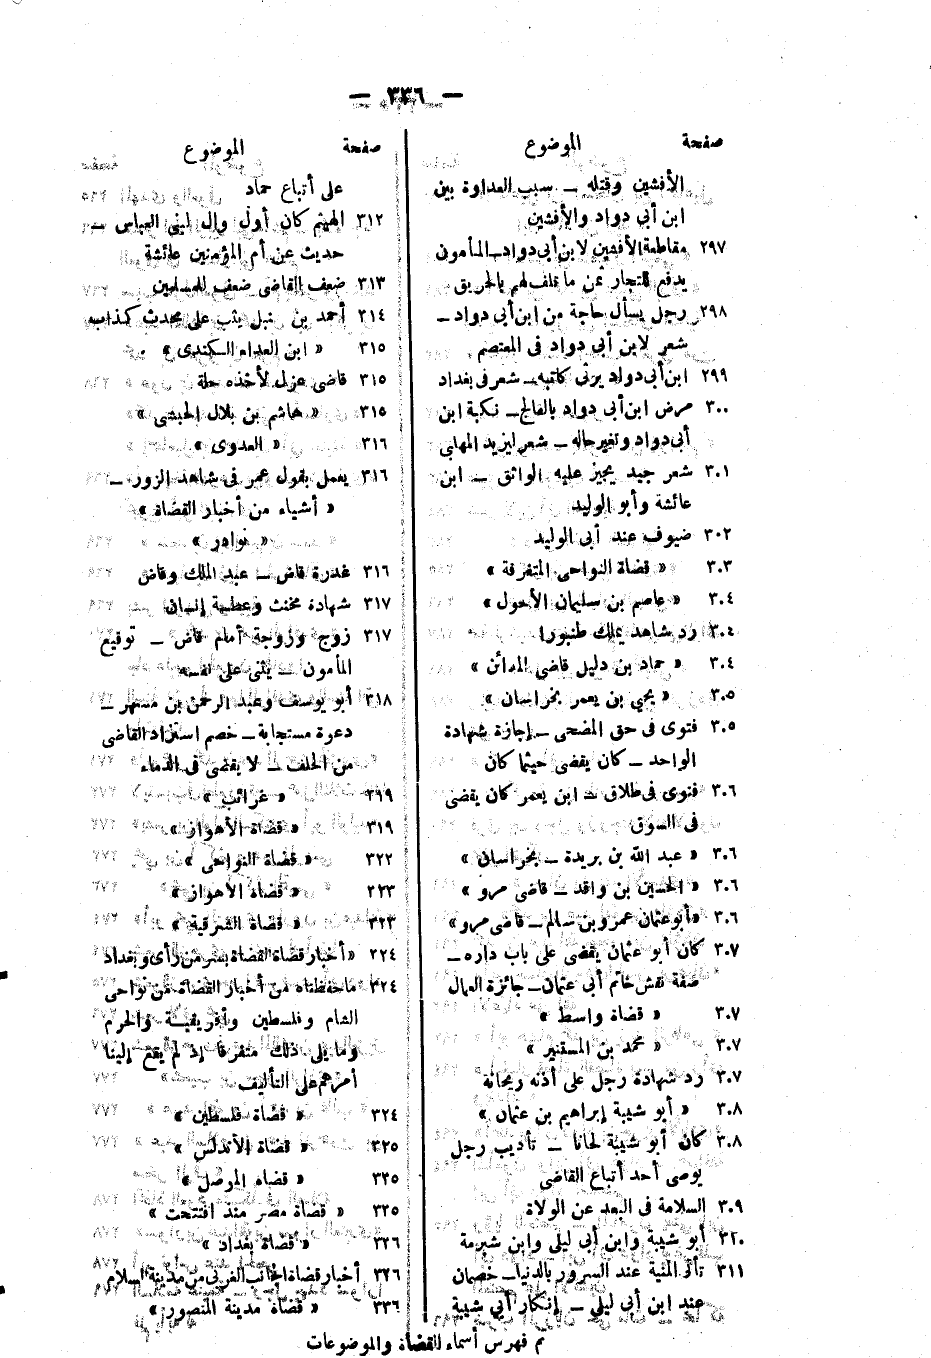 — ٣٣٦ —
صفحة الموضوع
الأفشين وقتله — سبب العداوة بين
ابن أبي دواد والأفشين
٢٩٧ مقاطعة الأفشين لابن أبي دواد — المأمون
يدفع للتجار ثمن ما تلف لهم بالحريق
٢٩٨ رجل يسأل حاجة من ابن أبي دواد —
شعر لابن أبي دواد في المعتصم
٢٩٩ ابن أبي دواد يرثى كاتبه — شعر في بغداد
٣٠٠ مرض ابن أبي دواد بالفالج — نكبة ابن
أبي دواد وتغير حاله — شعر ليزيد المهلبي
٣٠١ شعر جيد يجيز عليه الواثق — ابن
عائشة وأبو الوليد
٣٠٢ ضيوف عند أبي الوليد
٣٠٣ « قضاة النواحي المتفرقة »
٣٠٤ « عاصم بن سليمان الأحول »
٣٠٤ رد شاهد يملك طنبورا
٣٠٤ « حماد بن دليل قاضي المدائن »
٣٠٥ « يحيي بن يعمر بخراسان »
٣٠٥ فتوى في حق المضحى — إجازة شهادة
الواحد — كان يقضى حيثما كان
٣٠٦ فتوى في طلاق — ابن يعمر كان يقضى
في السوق
٣٠٦ « عبد الله بن بريدة — بخراسان »
٣٠٦ « الحسين بن واقد — قاضي مرو »
٣٠٦ « أبو عثمان عمرو بن سالم — قاضي مرو »
٣٠٧ كان أبو عثمان يقضى على باب داره —
صفة نقش خاتم أبي عثمان — جائزة العمال
٣٠٧ « قضاة واسط »
٣٠٧ « محمد بن المستنير »
٣٠٧ رد شهادة رجل على أذنه ريحانة
٣٠٨ « أبو شيبة إبراهيم بن عثمان »
٣٠٨ كان أبو شيبة لحانا — تأديب رجل
يوصى أحد أتباع القاضي
٣٠٩ السلامة في البعد عن الولاة
٣٢٠ أبو شيبة وابن أبي ليلى وابن شبرمة
٣١١ تأثر المنية عند السرور بالدنيا — خصمان
عند ابن أبي ليلى — إنكار أبي شيبة
صفحة الموضوع
على أتباع حماد
٣١٢ الهيثم كان أول وال لبنى العباس —
حديث عن أم المؤمنين عائشة
٣١٣ ضعف القاضي ضعف للمسلمين
٣١٤ أحمد بن حنبل يثب على محدث كذاب
٣١٥ « ابن العداء الكندى »
٣١٥ قاضي عزل لأخذه حلة
٣١٥ « هاشم بن بلال الحبشي »
٣١٦ « العدوى »
٣١٦ يعمل بقول عمر في شاهد الزور —
« أشياء من أخبار القضاة »
« نوادر »
٣١٦ غدرة قاض — عبد الملك وقاض
٣١٧ شهادة مخنث وعطية إنسان
٣١٧ زوج وزوجة أمام قاض — توقيع
المأمون — يثنى على نفسه
٣١٨ أبو يوسف وعبد الرحمن بن مسهر —
دعوة مستجابة — خصم استزاد القاضي
من الحلف — لا يقضى في الدماء
٣١٩ « غرائب »
٣١٩ « قضاة الأهواز »
٣٢٢ « قضاة النواحي »
٢٢٣ « قضاة الأهواز »
٣٢٣ « قضاة الشرقية »
٢٢٤ « أخبار قضاة القضاة بسر من رأى وبغداد
٣٢٤ ما حفظناه من أخبار القضاة من نواحي
الشام وفلسطين وأفريقية والحرم
وما يلى ذلك متفرقا إذ لم يقع إلينا
أمرهم على التأليف
٣٢٤ « قضاة فلسطين »
٣٢٥ « قضاة الأندلس »
٣٢٥ « قضاة الموصل »
٣٢٥ « قضاة مصر منذ افتتحت »
٣٢٦ « قضاة بغداد »
٣٢٦ أخبار قضاة الجانب الغربي من مدينة السلام
٣٣٦ « قضاة مدينة المنصور »
تم فهرس أسماء القضاة والموضوعات